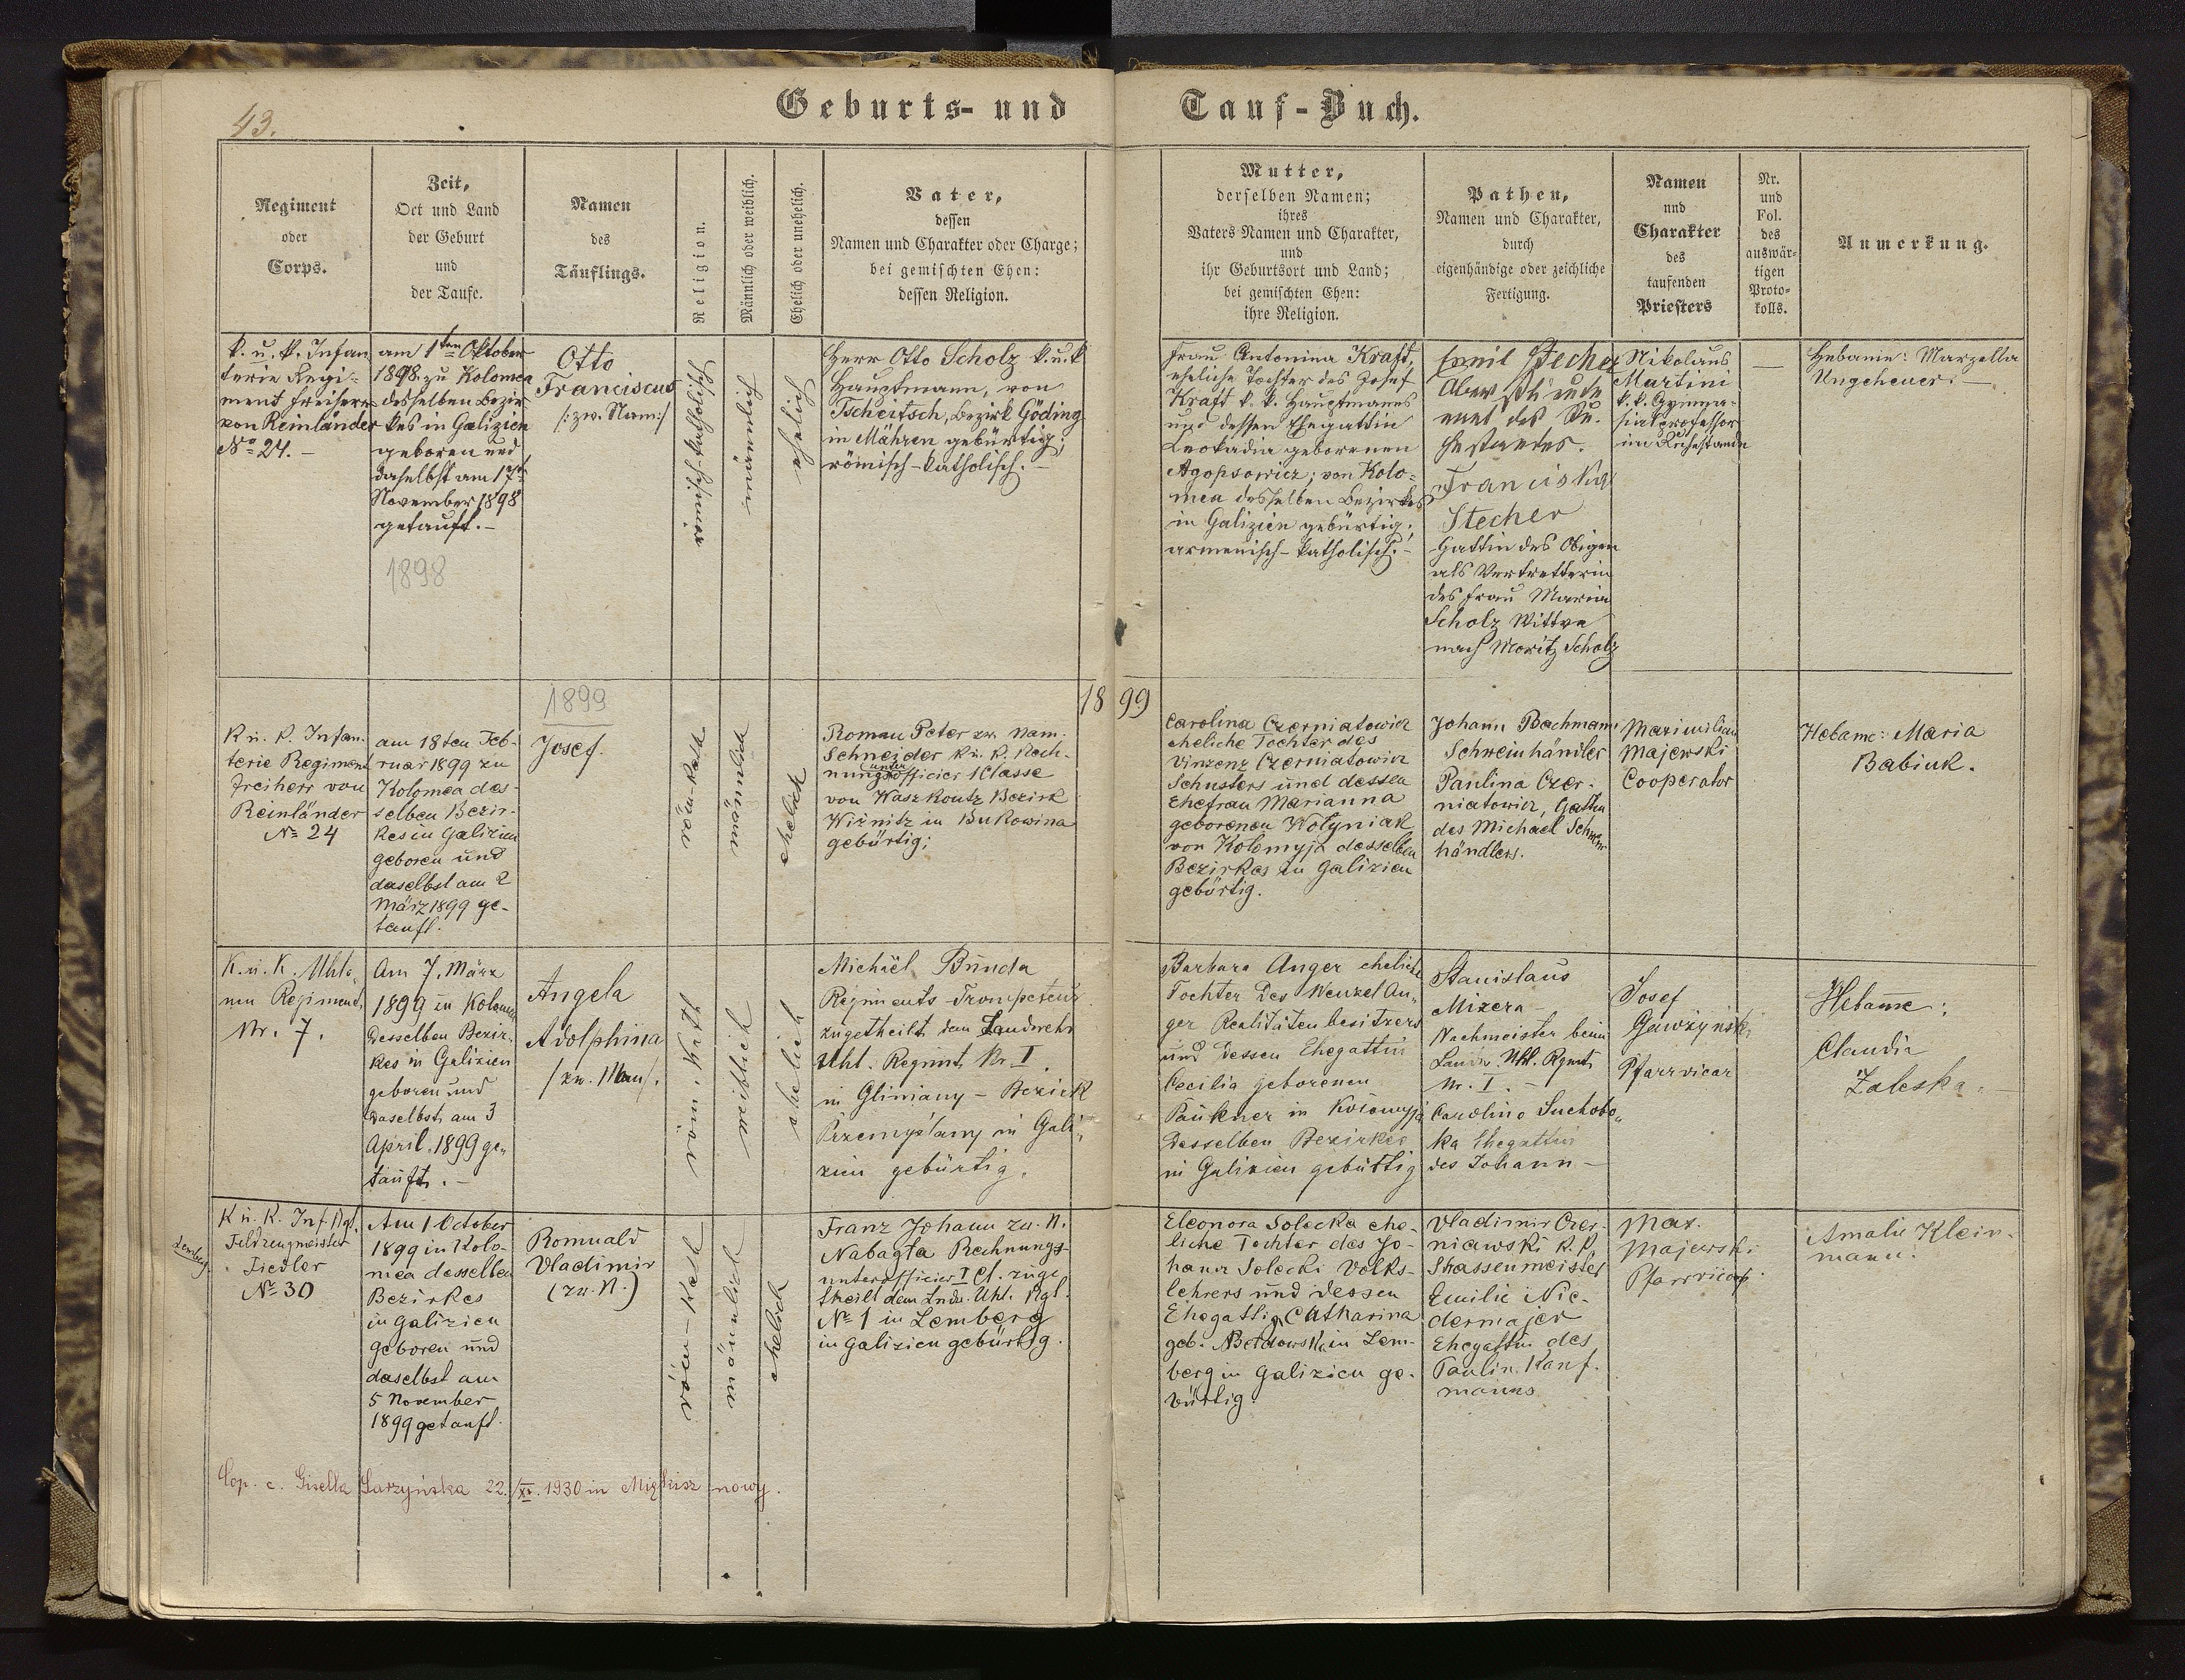 43.
Geburts- und Tauf-Buch.
Regiment
oder
Corps.
Zeit,
Ort und Land
der Geburt
und
der Taufe.
Namen
des
Täuflings.
Religion.
Männlich oder weiblich.
Ehelich oder unehelich.
Vater,
dessen
Namen und Charakter oder Charge;
bei gemischten Ehen:
dessen Religion.
Mutter,
derselben Namen;
ihres
Vaters Namen und Charakter,
und
ihr Geburtsort und Land;
bei gemischten Ehen:
ihre Religion.
Pathen,
Namen und Charakter,
durch
eigenhändige oder zeichliche
Fertigung.
Namen
und
Charakter
des
taufenden
Priesters
Nr.
und
Fol.
des
auswär-
tigen
Proto-
kolls.
Anmerkung.
k. u. k. Infan
terie Regi-
ment Freiherr
von Reinländer
No 24. —
am 1ten Oktober
1898 zu Kolomea
desselben Bezir-
kes in Galizien
geboren und
daselbst am 17ten
November 1898
getauft. —
1898
Otto
Franciscus
/: zw. Nam :/
römisch-katholisch
männlich
ehelich
Herr Otto Scholz k. u. k
Hauptmann, von
Tscheitsch, Bezirk Göding
in Mähren gebürtig;
römisch-katholisch. —
Frau Antonina Kraft,
eheliche Tochter des Josef
Kraft k. k. Hauptmanns
und dessen Ehegattin
Leokadia geborenen
Agopsowicz; von Kolo-
mea desselben Bezirkes
in Galizien gebürtig;
armenisch-katholisch. —
Emil Stecher
des
Franciska
Stecher
Gattin des Obigen
als Vertretterin
der Frau Maria
Scholz Wittwe
nach Moritz Scholz
Nikolaus
Martini
k. k. Gymna-
sialprofessor
im Ruhestande
—
Hebamme: Marzella
Ungeheuer. —
1899
1899
K u. K. Infan-
terie Regiment
Freiherr von
Reinländer
No 24
am 18ten Feb-
ruar 1899 zu
Kolomea des-
selben Bezir-
kes in Galizien
geboren und
daselbst am 2
März 1899 ge-
tauft.
Josef.
röm-kath
männlich
ehelich
Roman Peter zw. Nam.
Schneider k. u. k. Rech-
nungsunterofficier 1 Classe
von Waszkoutz Bezirk
Wiżnitz in Bukowina
gebürtig;
Carolina Czerniatowicz
eheliche Tochter des
Vinzenz Czerniatowicz
Schusters und dessen
Ehefrau Marianna
geborenen Wołyniak
von Kolomyja desselben
Bezirkes in Galizien
gebürtig.
Johann Bachmann
Schweinhändler
Paulina Czer-
niatowicz, Gattin
des Michael Schwein
händlers.
Maximilian
Majewski
Cooperator
Hebame: Maria
Babiuk.
K. u. K. Uhla-
nen Regiment
Nr. 7.
Am 7. März
1899 in Kolomea
desselben Bezir-
kes in Galizien
geboren und
daselbst am 3
April 1899 ge-
tauft. —
Angela
Adolphina
/zw. Nam/.
röm: kath
weiblich
ehelich
Michäel Bunda
Regiments-Trompeteur
zugetheilt dem Landwehr
Uhl. Regimt Nr. I.
in Gliniany - Bezirk
Przemyślany in Gali-
zien gebürtig.
Barbara Anger eheliche
Tochter des Wenzel An-
ger Realitätenbesitzers
und dessen Ehegattin
Cecilia geborenen
Paukner in Kołomyja
desselben Bezirkes
in Galizien gebürtig
Stanislaus
Mizera —
Wachmeister beim
Landw. Uhl. Rgmt
Nr. I. —
Carolina Suchobo-
ka Ehegattin
des Johann —
Josef
Gawżyński
Pfarrvicar
Hebamme:
Claudia
Zaleska. —
Lemberg
K u. K. Inf Rgt.
Feldzeugmeister
Fiedler
No 30
Am 1 October
1899 in Kolo-
mea desselben
Bezirkes
in Galizien
geboren und
daselbst am
5 November
1899 getauft.
Romuald
Vladimir
(zw. N.)
röm-kath
männlich
ehelich
Franz Johann zw. N.
Nabagła Rechnungs-
unterofficier I Cl. zuge
theilt dem Lndw. Uhl. Rgt.
No 1 in Lemberg
in Galizien gebürtig.
Eleonora Solecka ehe-
liche Tochter des Jo-
hann Solecki Volks-
lehrers und dessen
Ehegattin Catharina
geb. in Lem-
berg in Galizien ge-
bürtig
Vladimir Czer-
niawski k. k.
Strassenmeister
Emilie Nie-
dermajer
Ehegattin des
Paulin Kauf-
manns
Max.
Majewski
Pfarrvicar.
Amalie Klein-
mann.
Cop. c. Gisella Jarzyńska 22./XI. 1930 in Miękisz nowy.